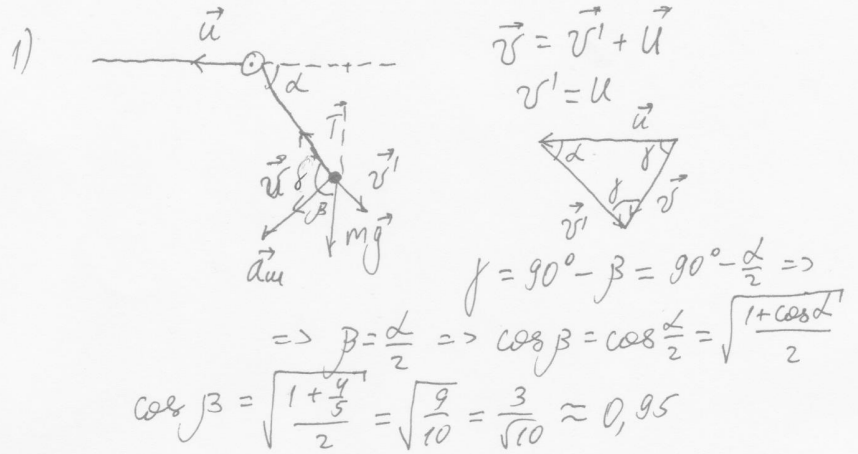 1)
u⃗
α
T⃗₁
v⃗ γ β v⃗'
a⃗ₘ mg⃗
v⃗ = v⃗' + u⃗
v' = u
u⃗
α γ
γ
v⃗' v⃗
γ = 90° − β = 90° − α/2 =>
=> β = α/2 => cos β = cos α/2 = √((1 + cos α)/2)
cos β = √((1 + 4/5)/2) = √(9/10) = 3/√10 ≈ 0,95